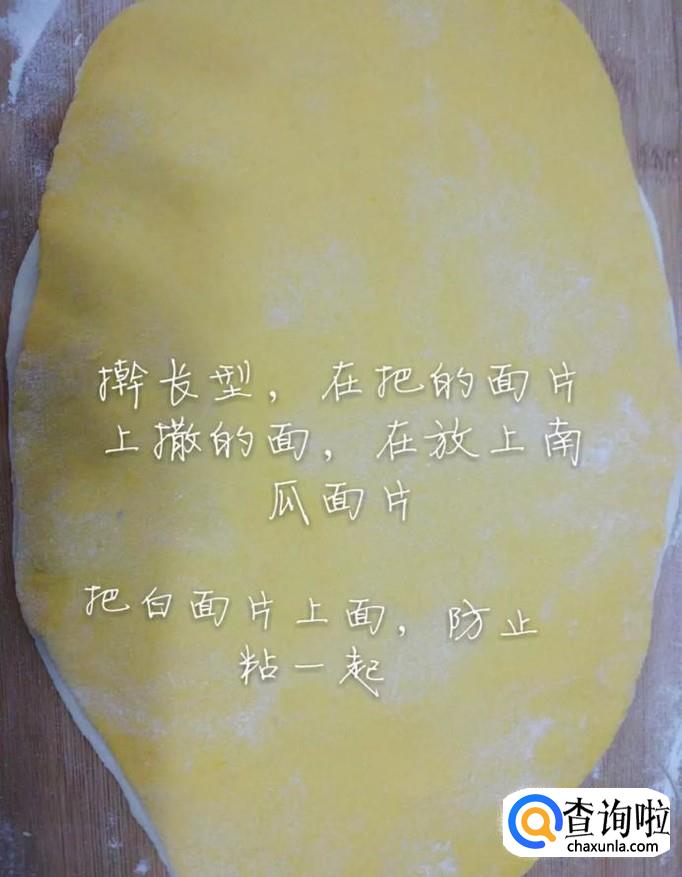 擀长型，在把的面片
上撒的面，在放上南
瓜面片
把白面片上面，防止
粘一起
查询啦
chaxunla.com